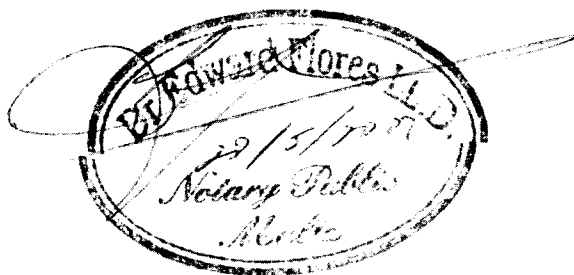 Dr Edward Flores LL.D.
Notary Public
Malta